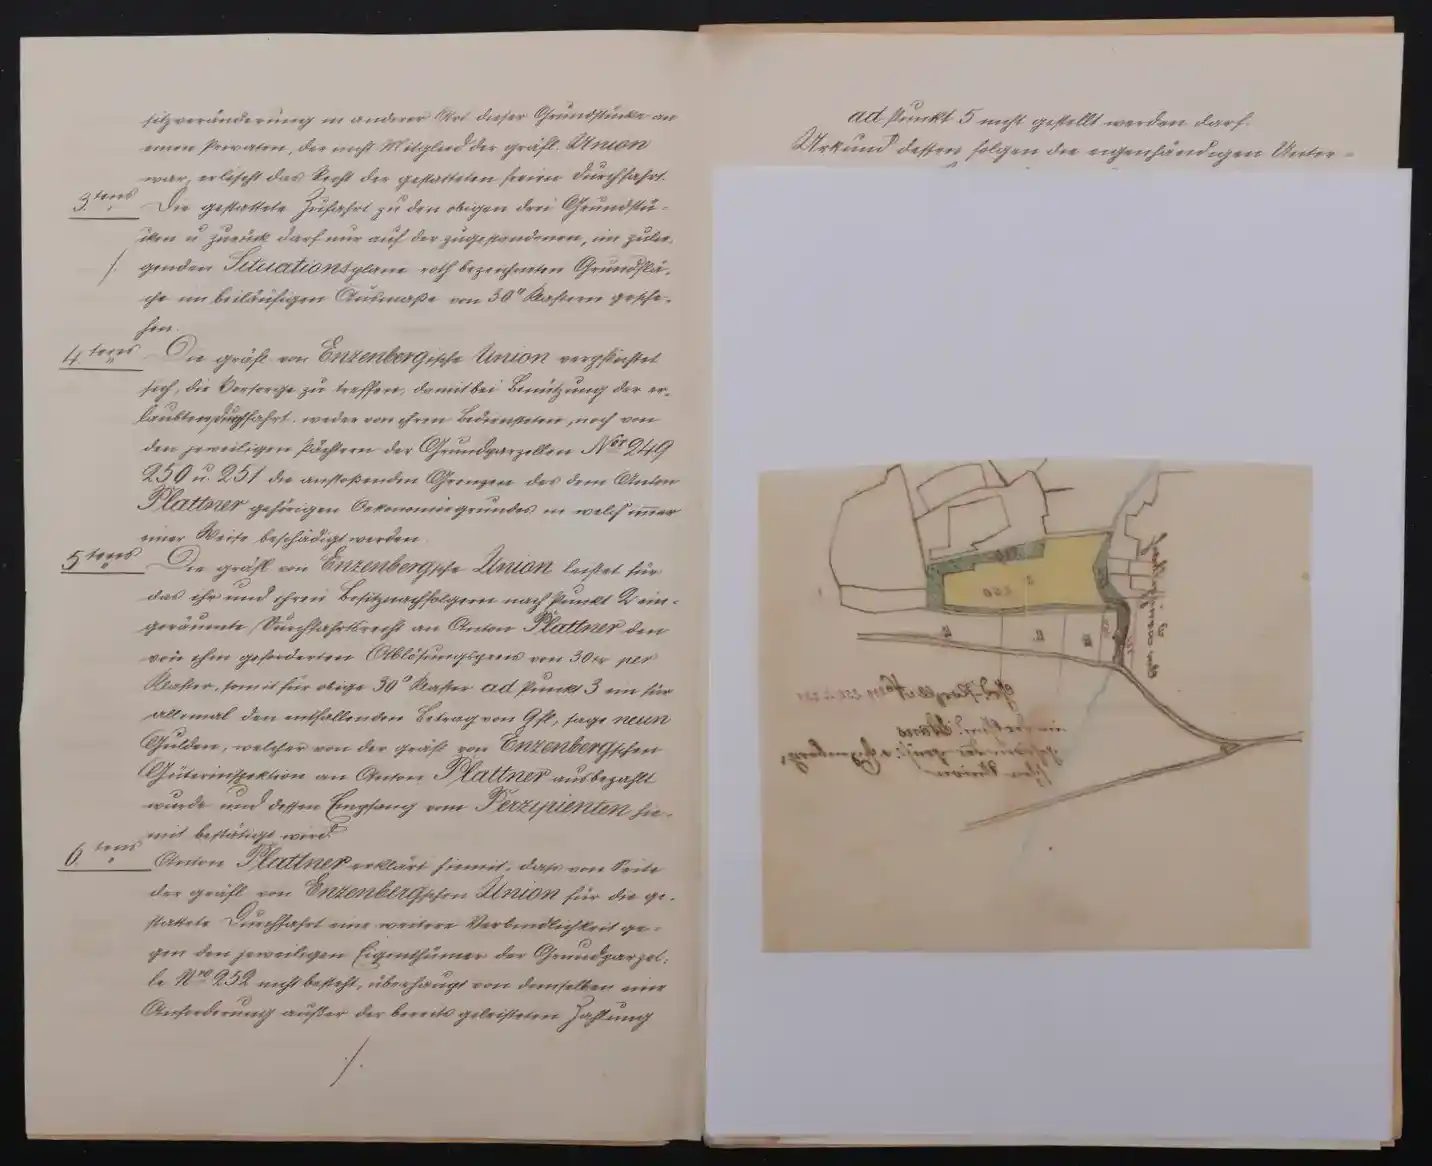 sitzveränderung in anderer Art dieser Grundstücke an
einen Privaten, der nicht Mitglied der gräfl. Union
war, erlischt das Recht der gestatteten freien Durchfahrt.
3.tens Die gestattete Zufahrt zu den obigen drei Grundstü-
cken u zurück darf nur auf der zugestandenen, im zulie-
genden Situationsplane roth bezeichneten Grundflä-
che im beiläufigen Ausmaße von 30° Klaftern gesche-
hen.
4.tens Die gräfl. von Enzenbergische Union verpflichtet
sich, die Vorsorge zu treffen, damit bei Benützung der er-
laubten Durchfahrt weder von ihren Bediensteten, noch von
den jeweiligen Pächtern der Grundparzellen Nris 249
250 u. 251 die anstoßenden Grenzen des dem Anton
Plattner gehörigen Oekonomiegrundes in welch' immer
einer Weise beschädigt werden.
5.tens Die gräfl von Enzenbergsche Union leistet für
das ihr und ihren Besitznachfolgern nach Punkt 2 ein-
geräumte Durchfahrtsrecht an Anton Plattner den
von ihm geforderten Ablösungspreis von 30 kr per
Klafter, somit für obige 30° Klafter ad Punkt 3 ein für
allemal den entfallenden Betrag von 9 fl, sage neun
Gulden, welcher von der gräfl von Enzenbergschen
Güterinspektion an Anton Plattner ausbezahlt
wurde und dessen Empfang vom Perzipienten hie-
mit bestätigt wird.
6.tens Anton Plattner erklärt hiemit, dass von Seite
der gräfl von Enzenbergschen Union für die ge-
stattete Durchfahrt eine weitere Verbindlichkeit ge-
gen den jeweiligen Eigenthümer der Grundparzel-
le Nro 252 nicht besteht, überhaupt von demselben eine
Anforderung außer der bereits geleisteten Zahlung
./.
ad Punkt 5 nicht gestellt werden darf.
Urkund dessen folgen die eigenhändigen Unter-
250